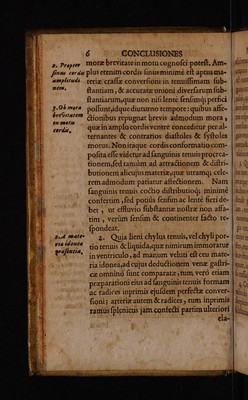 6 CONCLUSIONES
2. Propter
sinus cordis
amplitudi
nem.
3. Ob mora
breuitatem
in motu
cordis.
2. A mate-
ria idonea
præsentia,
moræ breuitate in motu cognosci potest. Am-
plus etenim cordis sinus minimè est aptus ma-
teriæ crassæ conuersioni in tenuissimam sub-
stantiam, & accuratæ unioni diuersarum sub-
stantiarum, quæ non nisi lentè sensimq; perfici
possunt, idque diuturno tempore: quibus affe-
ctionibus repugnat breuis admodum mora,
quæ in amplo cordis ventre conceditur per al-
ternantes & contrarios diastoles & systoles
motus. Non itaque cordis conformatio com-
posita esse videtur ad sanguinis tenuis procrea-
tionem, sed tantùm ad attractionem & distri-
butionem alicuius materiæ, quæ utramq; cele-
rem admodum patiatur affectionem. Nam
sanguinis tenuis coctio distributioq; minimè
confertim, sed potiùs sensim ac lentè fieri de-
bet, ut effluuio substantiæ nostræ non affa-
tim, verùm sensim & continenter facto re-
spondeat.
2. Quia lieni chylus tenuis, vel chyli por-
tio tenuis & liquida, quæ nimirum immoratur
in ventriculo, ad manum veluti est ceu mate-
ria idonea, ad cuius deductionem venæ gastri-
cæ omninò sunt comparatæ, tum verò etiam
præparationi eius ad sanguinis tenuis formam
ac radices inprimis eiusdem perfectæ conuer-
sioni: arteriæ autem & radices, tum inprimis
ramus splenicus jam confecti partim ulteriori
ela-